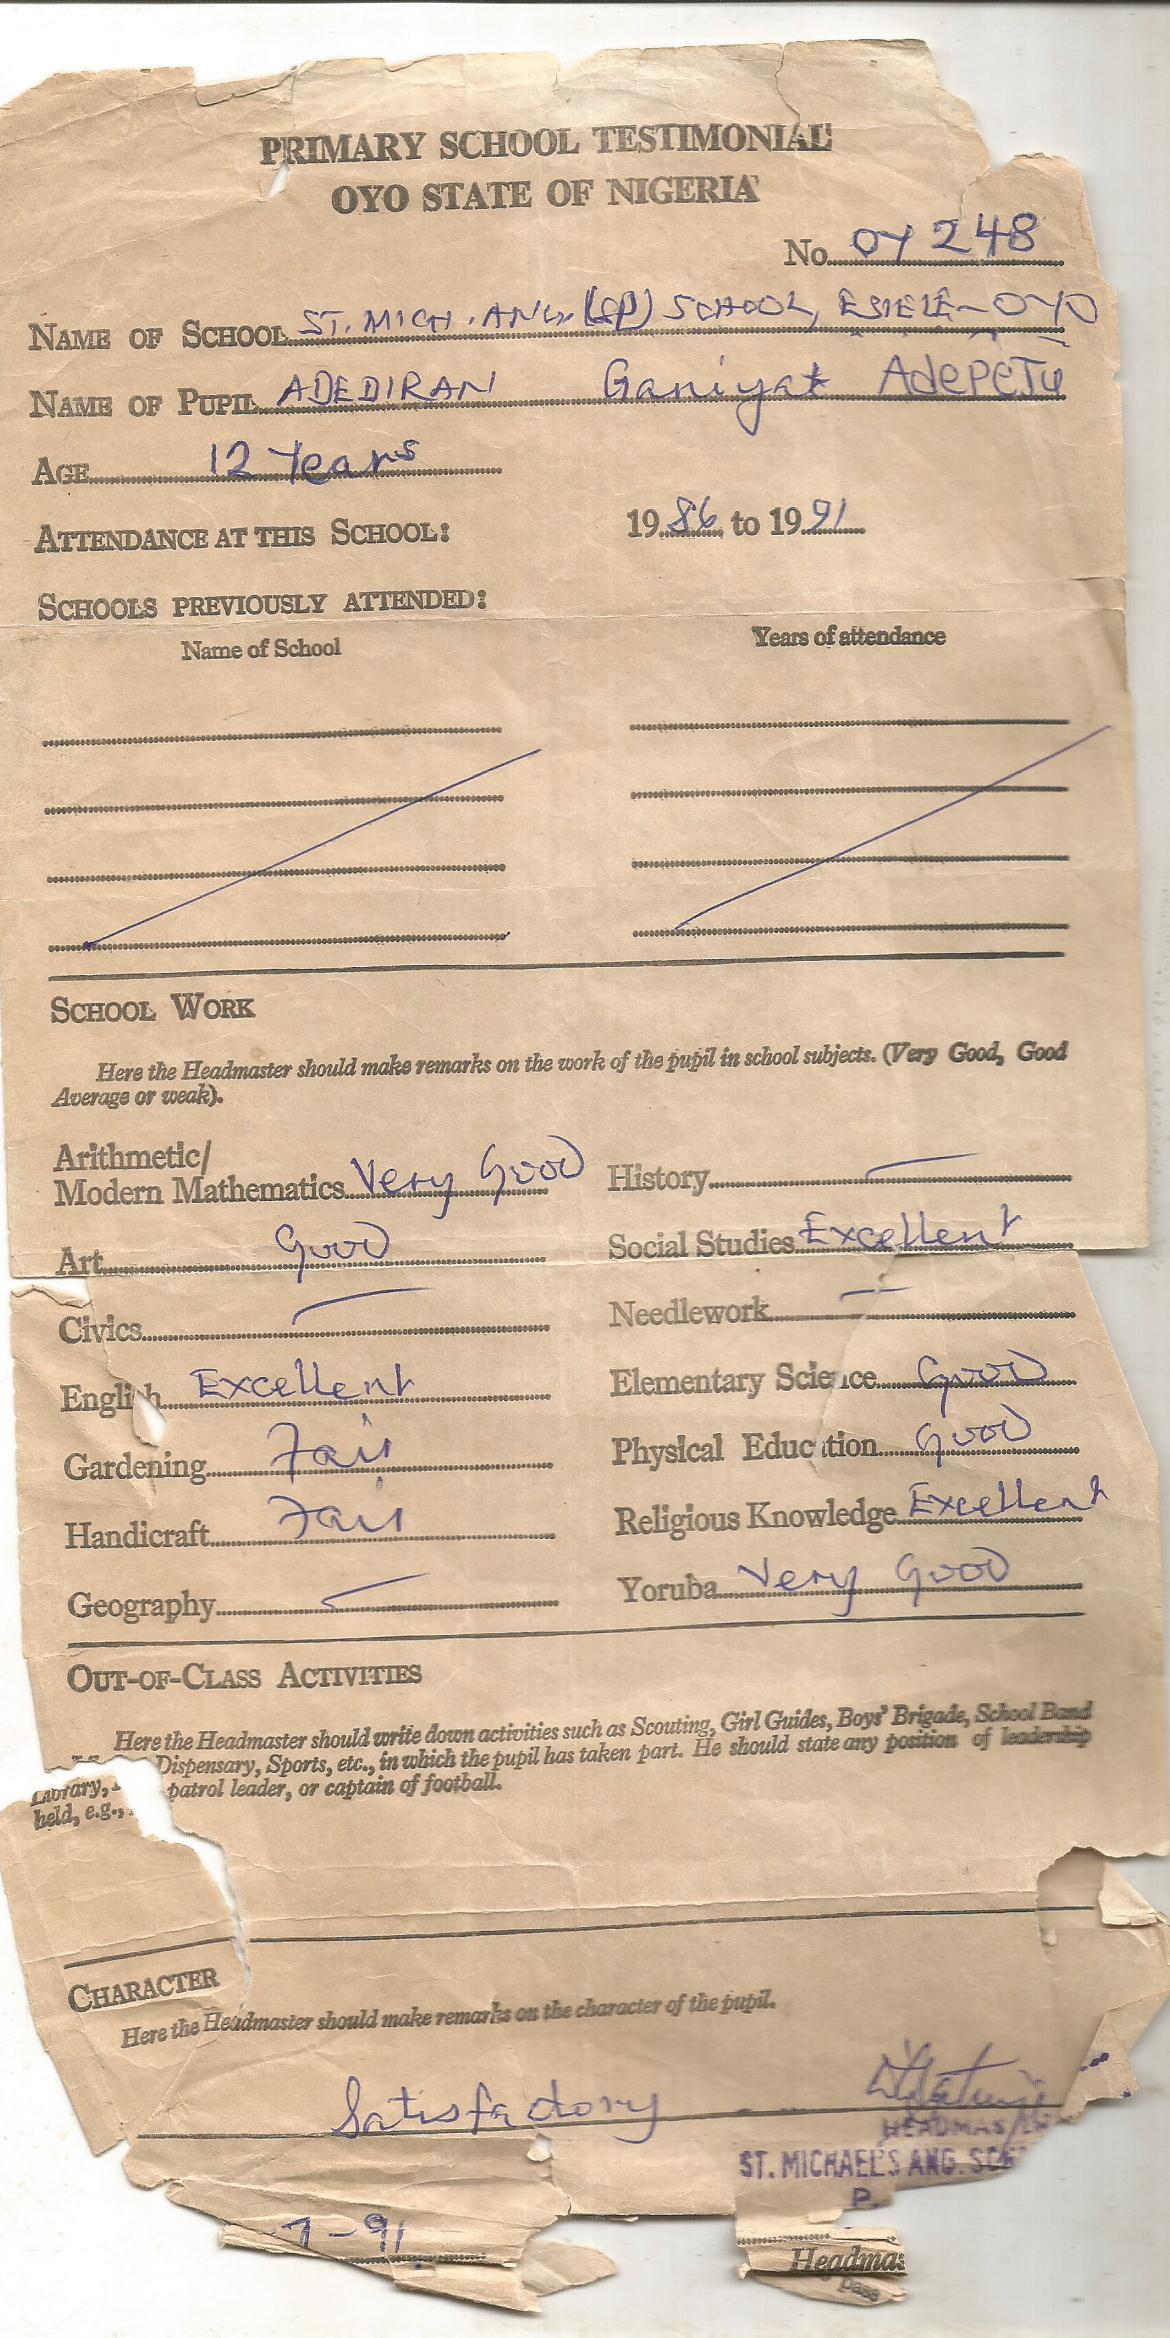 PRIMARY SCHOOL TESTIMONIAL
OYO STATE OF NIGERIA
No. OY 248
NAME OF SCHOOL ST. MICH. ANG. (SP) SCHOOL, ESIELE-OYO
NAME OF PUPIL ADEDIRAN Ganiyat AdePeTu
AGE 12 Years
ATTENDANCE AT THIS SCHOOL: 1986 to 1991
SCHOOLS PREVIOUSLY ATTENDED:
Name of School Years of attendance
SCHOOL WORK
Here the Headmaster should make remarks on the work of the pupil in school subjects. (Very Good, Good
Average or weak).
Arithmetic/
Modern Mathematics Very Good History —
Art Good Social Studies Excellent
Civics — Needlework —
English Excellent Elementary Science Good
Gardening Fair Physical Education Good
Handicraft Fair Religious Knowledge Excellent
Geography — Yoruba Very Good
OUT-OF-CLASS ACTIVITIES
Here the Headmaster should write down activities such as Scouting, Girl Guides, Boys' Brigade, School Band
Library, Dispensary, Sports, etc., in which the pupil has taken part. He should state any position of leadership
held, e.g., patrol leader, or captain of football.
CHARACTER
Here the Headmaster should make remarks on the character of the pupil.
Satisfactory
ST. MICHAEL'S ANG.
P.
7-91